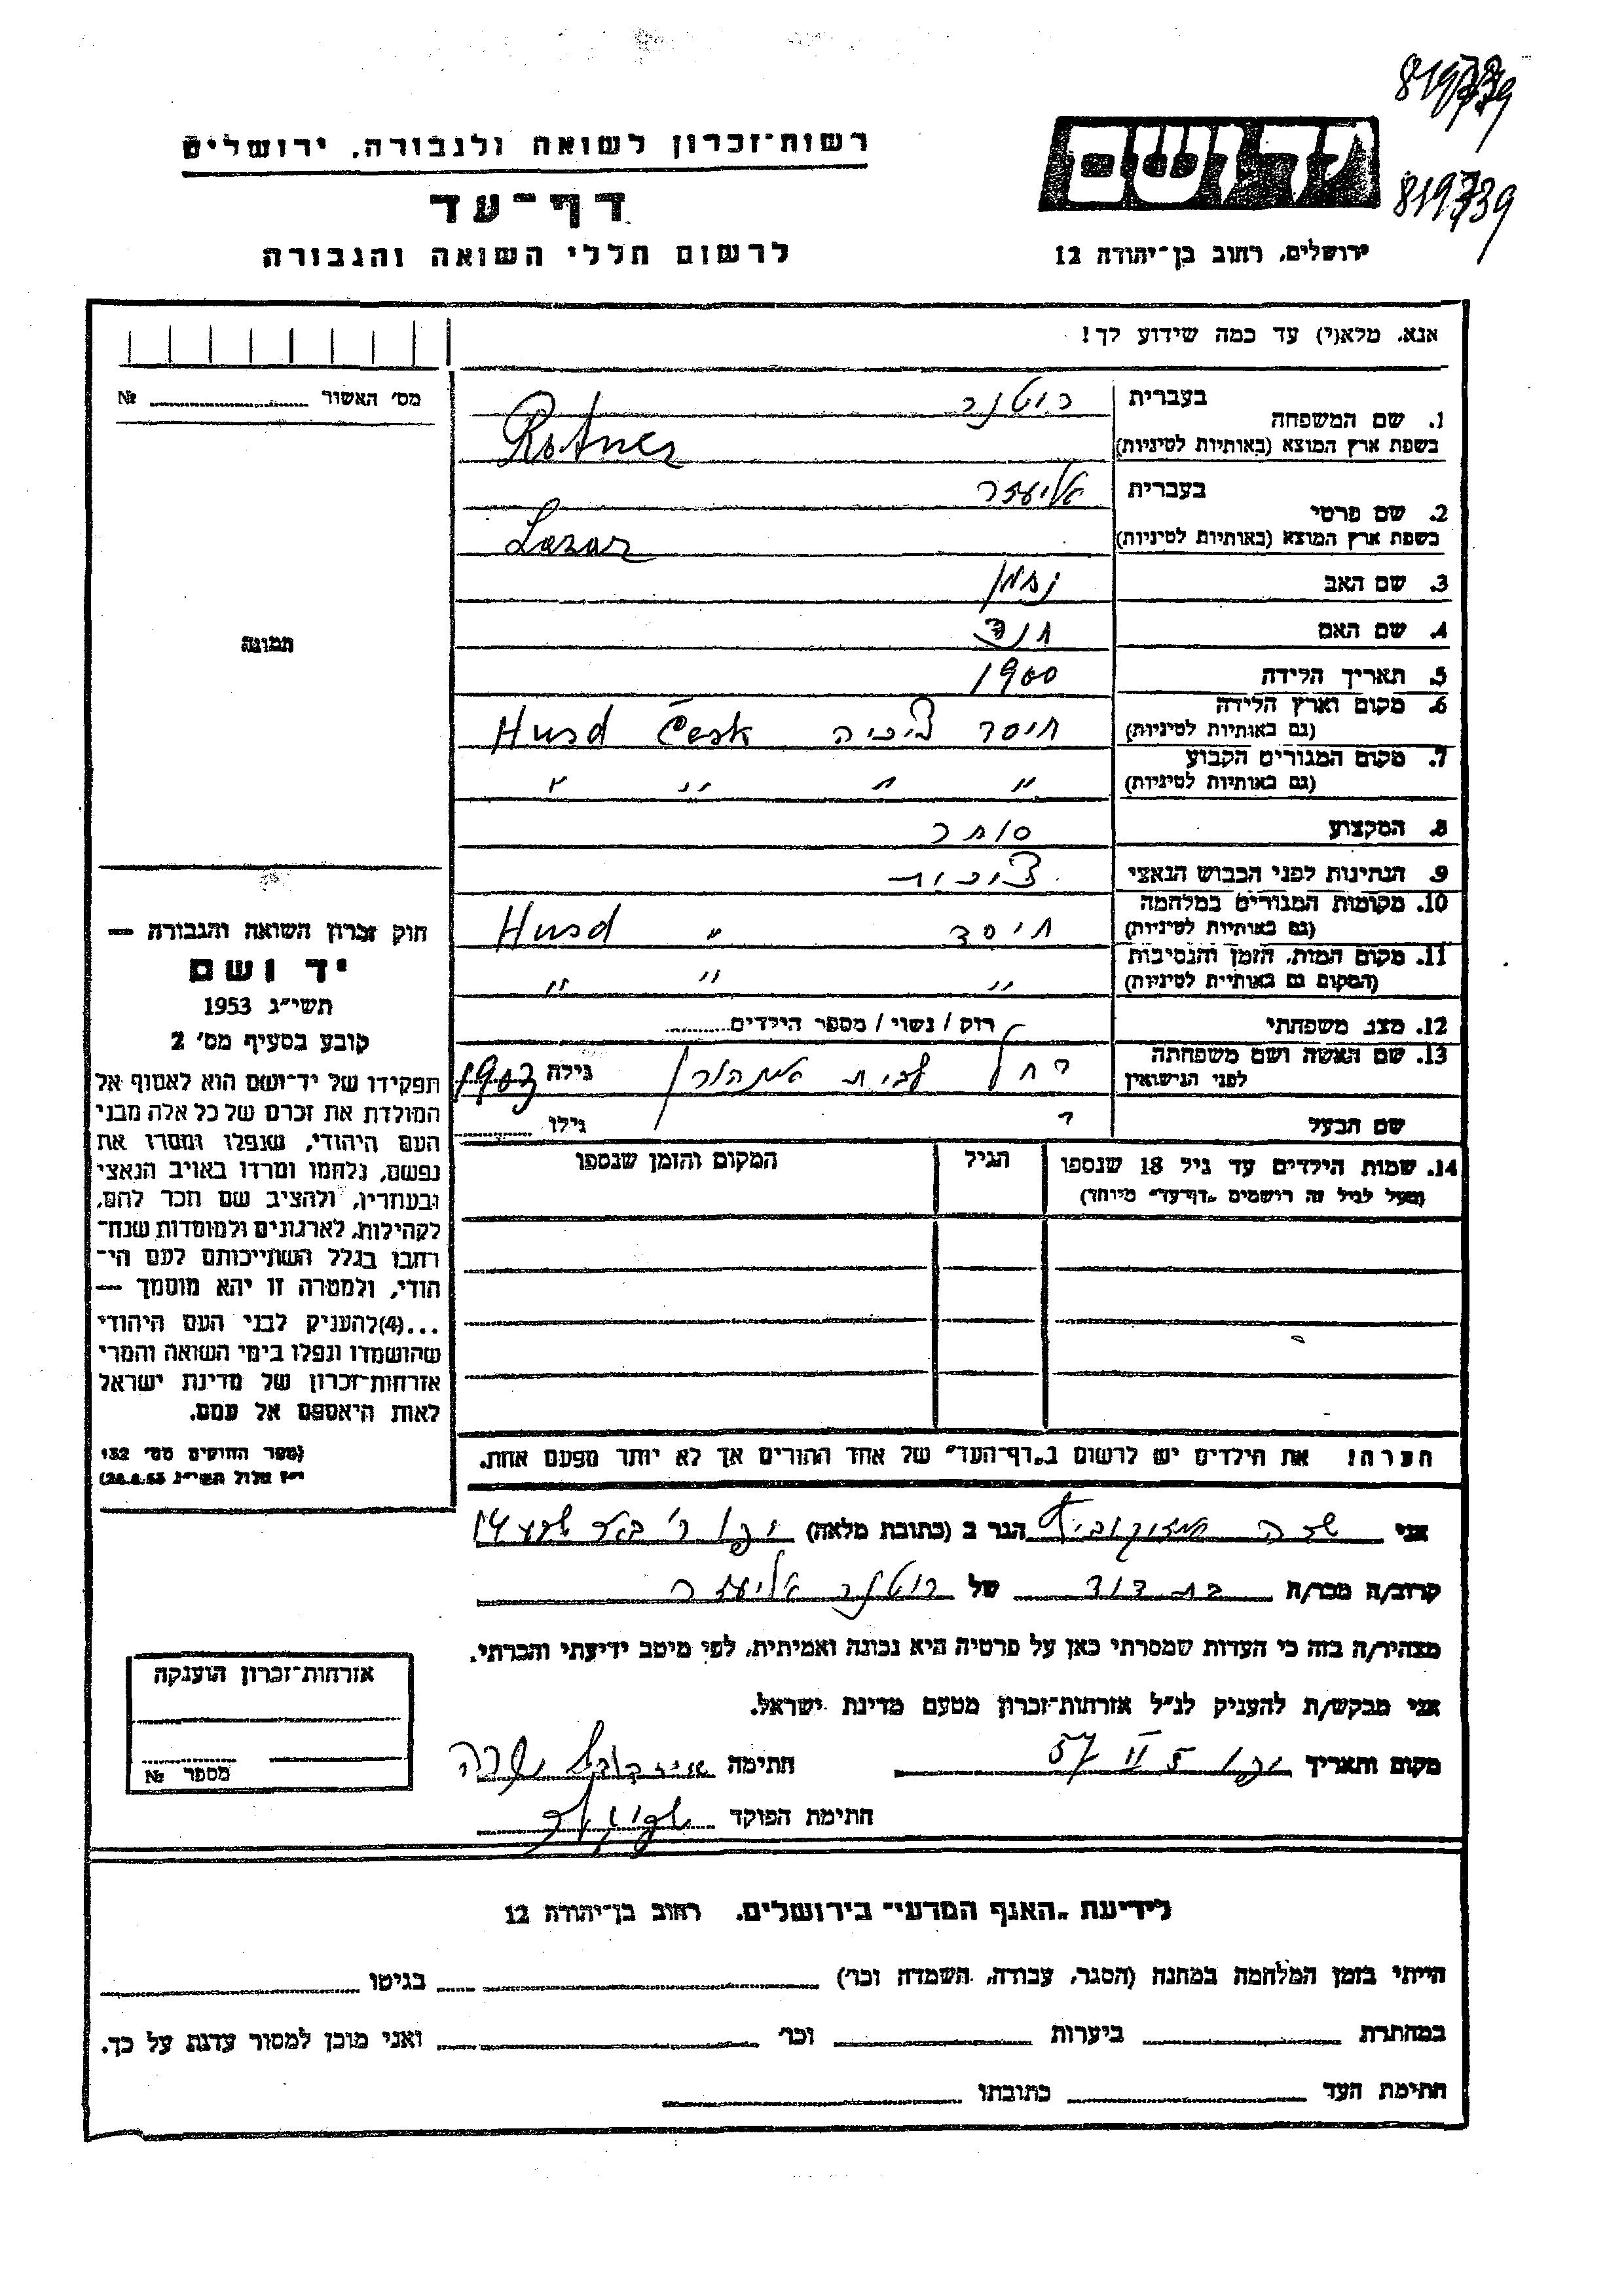 819739
819739
יד ושם
ירושלים, רחוב בן־יהודה 12
רשות־זכרון לשואה ולגבורה, ירושלים
דף־עד
לרשום חללי השואה והגבורה
אנא, מלא(י) עד כמה שידוע לך!
מס׳ האשור №
1. שם המשפחה
בעברית רוטנר
בשפת ארץ המוצא (באותיות לטיניות) Rotner
2. שם פרטי
בעברית אליעזר
בשפת ארץ המוצא (באותיות לטיניות) Lazar
3. שם האב נחמן
4. שם האם חנה
תמונה
5. תאריך הלידה 1900
6. מקום וארץ הלידה
(גם באותיות לטיניות) חוסד צ׳כיה Česk Husd
7. מקום המגורים הקבוע
(גם באותיות לטיניות) " " " "
8. המקצוע סוחר
9. הנתינות לפני הכבוש הנאצי צ׳כית
10. מקומות המגורים במלחמה
(גם באותיות לטיניות) חוסד " Husd
11. מקום המות, הזמן והנסיבות
(המקום גם באותיית לטיניות) " " "
12. מצב משפחתי רוק / נשוי / מספר הילדים
13. שם האשה ושם משפחתה
לפני הנישואין רחל לבית גילה 1903
שם הבעל גילו
14. שמות הילדים עד גיל 18 שנספו הגיל המקום והזמן שנספו
(מעל לגיל זה רושמים „דף־עד״ מיוחד)
חוק זכרון השואה והגבורה —
יד ושם
תשי״ג 1953
קובע בסעיף מס׳ 2
תפקידו של יד־ושם הוא לאסוף אל
המולדת את זכרם של כל אלה מבני
העם היהודי, שנפלו ומסרו את
נפשם, נלחמו ומרדו באויב הנאצי
ובעוזריו, ולהציב שם וזכר להם,
לקהילות, לארגונים ולמוסדות שנח־
רבו בגלל השתייכותם לעם הי־
הודי, ולמטרה זו יהא מוסמך —
...(4)להעניק לבני העם היהודי
שהושמדו ונפלו בימי השואה והמרי
אזרחות־זכרון של מדינת ישראל
לאות היאספם אל עמם.
(ספר החוקים מס׳ 132
י״ז אלול תשי״ג 28.8.53)
הערה! את הילדים יש לרשום ב„דף־העד״ של אחד ההורים אך לא יותר מפעם אחת.
אני שרה הגר ב (כתובת מלאה) 14
קרוב/ה מכר/ה בת דוד של רוטנר אליעזר
מצהיר/ה בזה כי העדות שמסרתי כאן על פרטיה היא נכונה ואמיתית, לפי מיטב ידיעתי והכרתי.
אני מבקש/ת להעניק לנ״ל אזרחות־זכרון מטעם מדינת ישראל.
מקום ותאריך 5 II 57 חתימה שרה
חתימת הפוקד
אזרחות־זכרון הוענקה
מספר №
לידיעת „האגף המדעי״ בירושלים, רחוב בן־יהודה 12
הייתי בזמן המלחמה במחנה (הסגר, עבודה, השמדה וכו׳) בגיטו
במחתרת ביערות וכו׳ ואני מוכן למסור עדות על כך.
חתימת העד כתובתו